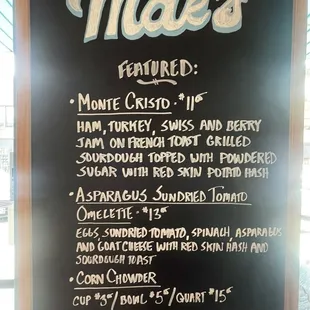 Mae's
FEATURED:
• MONTE CRISTO • $11
HAM, TURKEY, SWISS AND BERRY
JAM ON FRENCH TOAST GRILLED
SOURDOUGH TOPPED WITH POWDERED
SUGAR WITH RED SKIN POTATO HASH
• ASPARAGUS SUNDRIED TOMATO
OMELETTE • $13
EGGS, SUNDRIED TOMATO, SPINACH, ASPARAGUS
AND GOAT CHEESE WITH RED SKIN HASH AND
SOURDOUGH TOAST
• CORN CHOWDER
CUP $3 / BOWL $5 / QUART $15